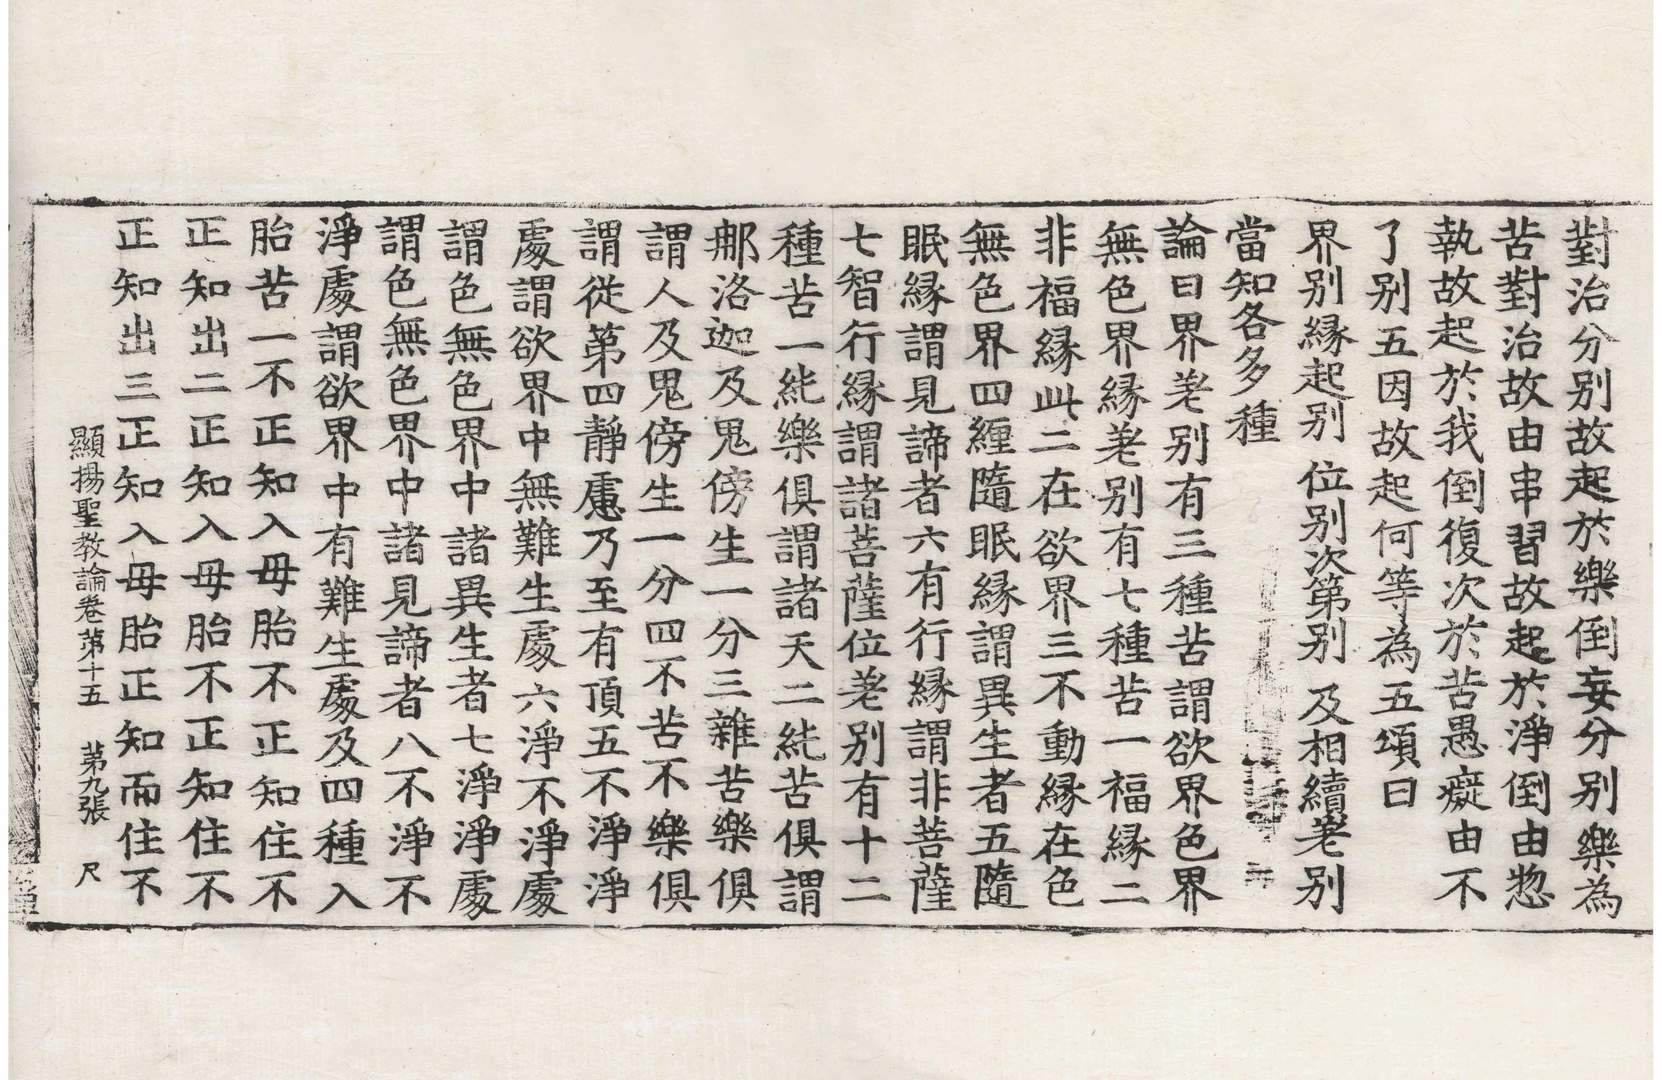 對治分別故起於樂倒妄分別樂為
苦對治故由串習故起於淨倒由惣
執故起於我倒復次於苦愚癡由不
了別五因故起何等為五頌曰
界別縁起別 位別次第別 及相續差別
當知各多種
論曰界差別有三種苦謂欲界色界
無色界縁差別有七種苦一福縁二
非福縁此二在欲界三不動縁在色
無色界四纏隨眠縁謂異生者五隨
眠縁謂見諦者六有行縁謂非菩薩
七智行縁謂諸菩薩位差別有十二
種苦一純樂俱謂諸天二純苦俱謂
那洛迦及鬼傍生一分三雜苦樂俱
謂人及鬼傍生一分四不苦不樂俱
謂從第四靜慮乃至有頂五不淨淨
處謂欲界中無難生處六淨不淨處
謂色無色界中諸異生者七淨淨處
謂色無色界中諸見諦者八不淨不
淨處謂欲界中有難生處及四種入
胎苦一不正知入毋胎不正知住不
正知出二正知入毋胎不正知住不
正知出三正知入毋胎正知而住不
顯揚聖教論卷第十五 第九張 尺